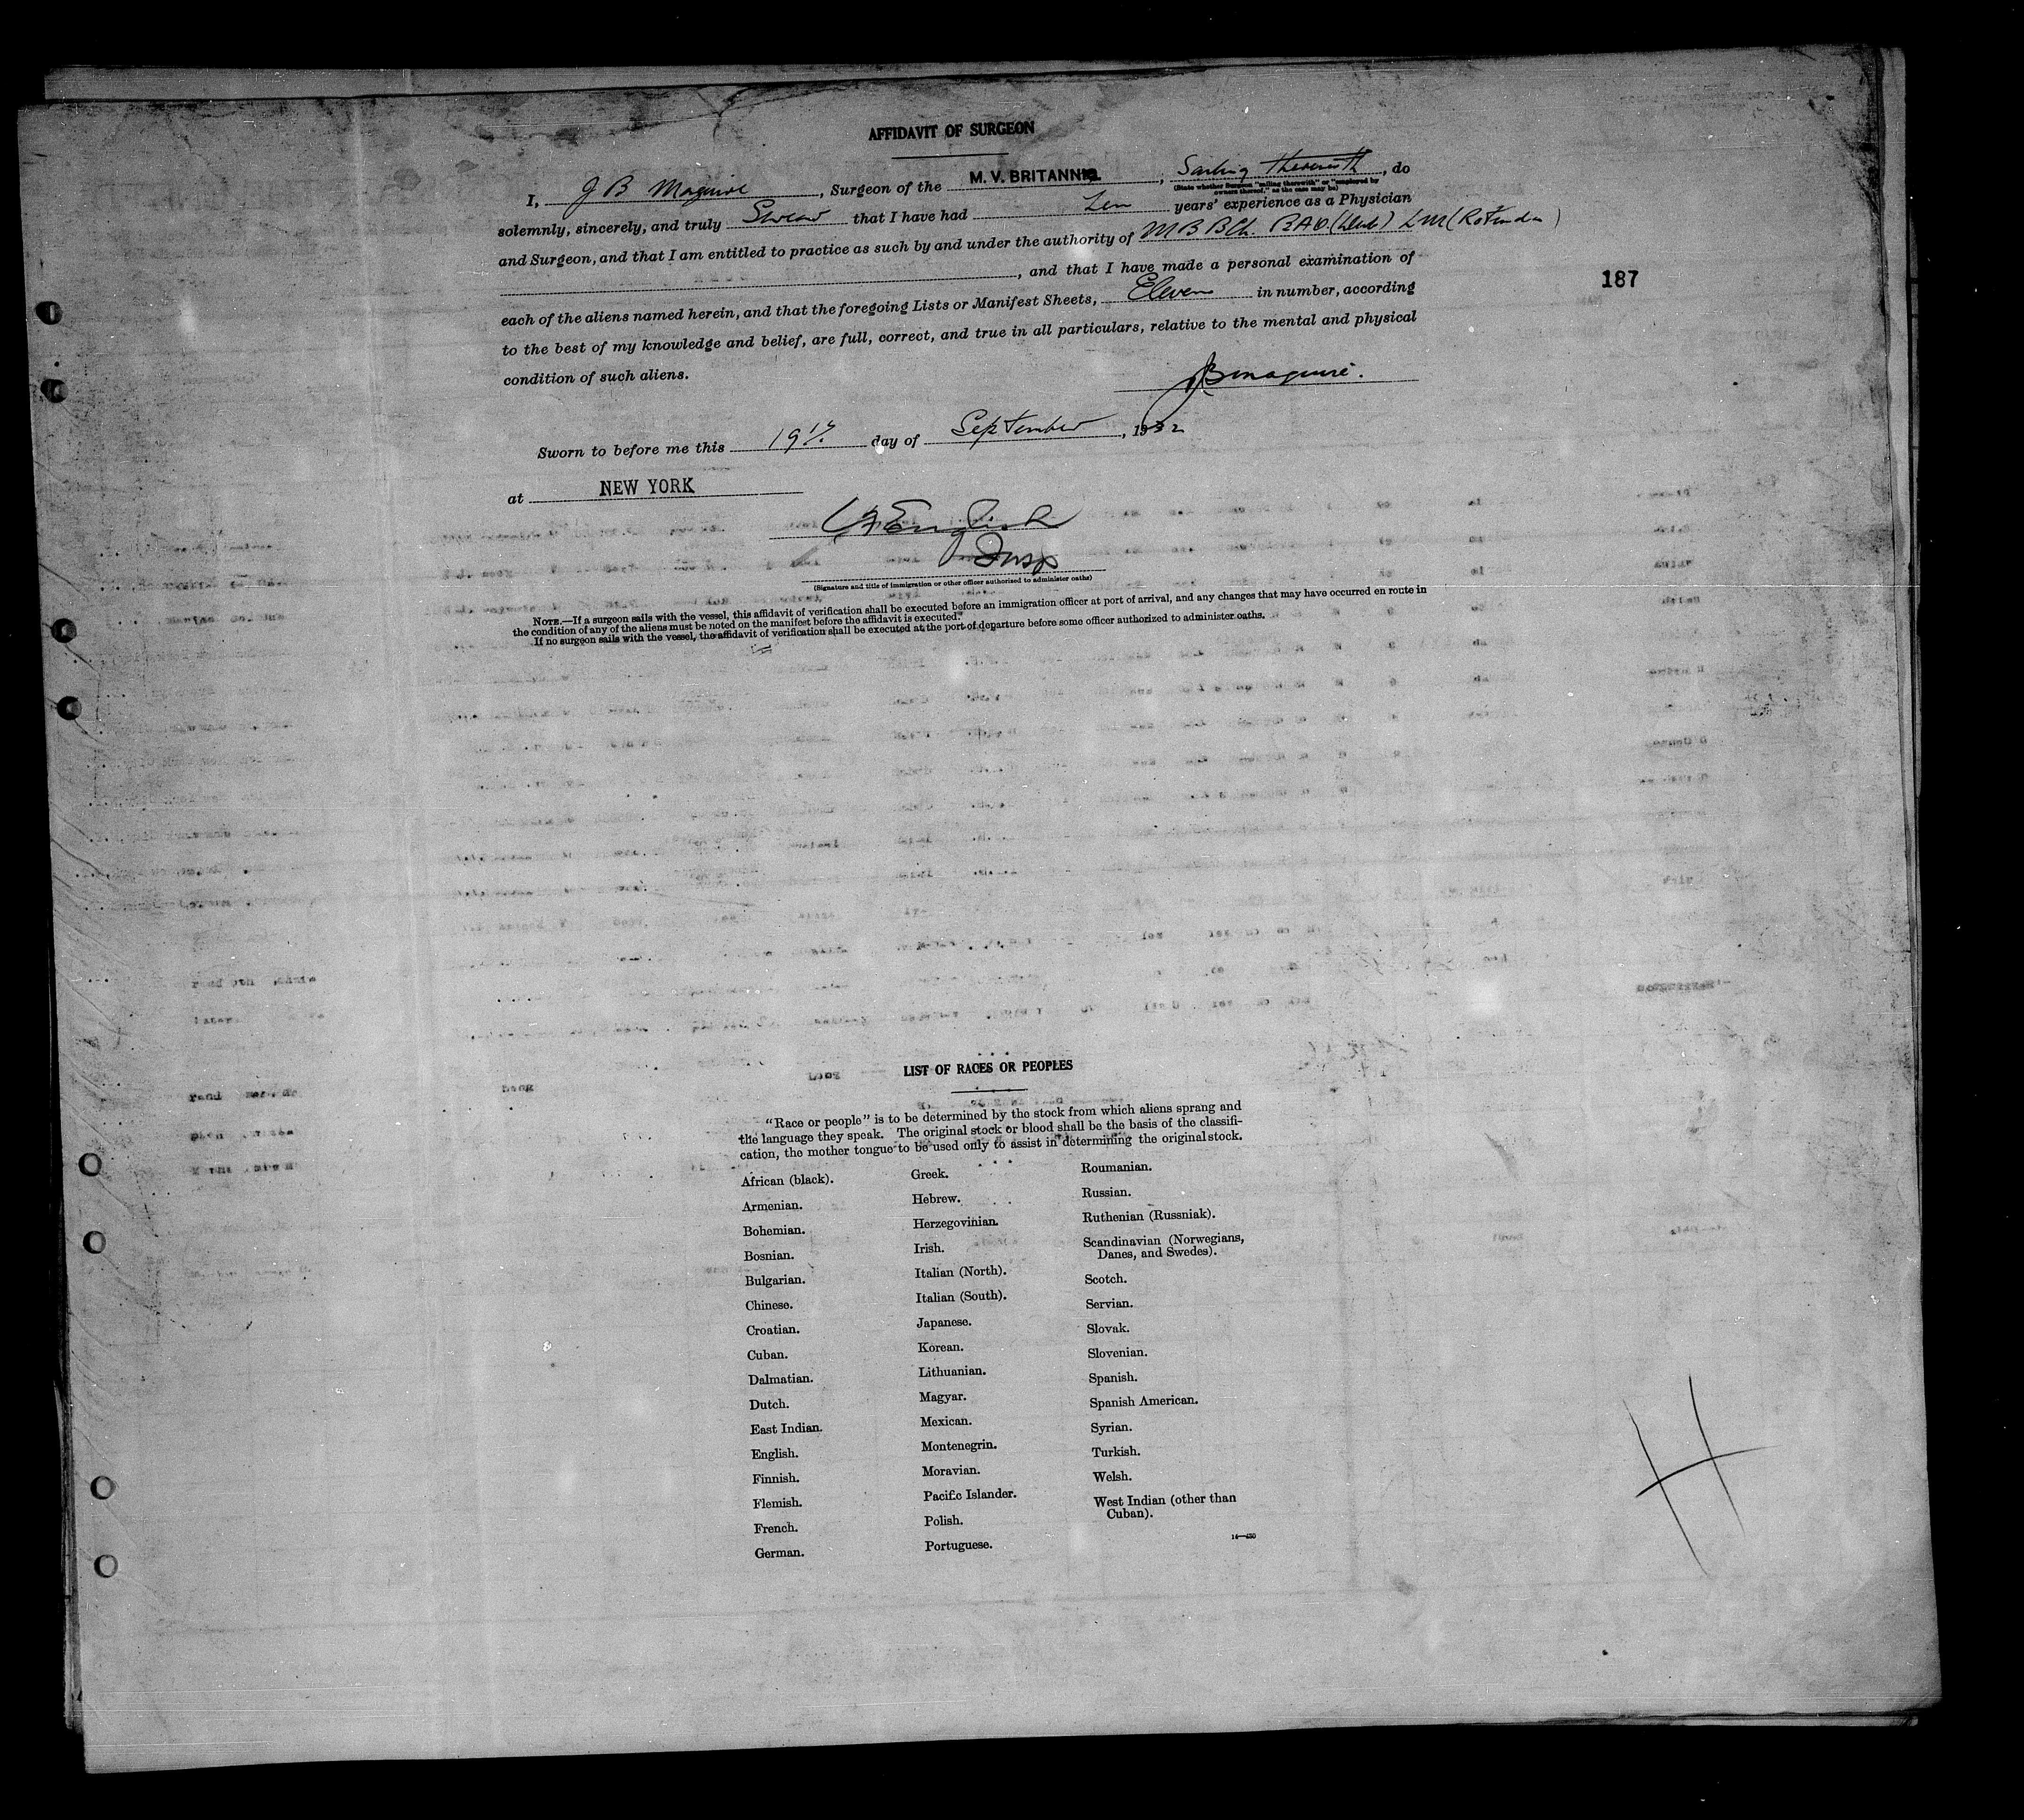 AFFIDAVIT OF SURGEON
I, J B Maguire, Surgeon of the M. V. BRITANNIC, Sailing therewith, do
(State whether Surgeon "sailing therewith" or "employed by
owners thereof," as the case may be)
solemnly, sincerely, and truly Swear that I have had Ten years' experience as a Physician
and Surgeon, and that I am entitled to practice as such by and under the authority of M B BCh. BAO. (Dub) LM (Rotunda)
, and that I have made a personal examination of
187
each of the aliens named herein, and that the foregoing Lists or Manifest Sheets, Eleven in number, according
to the best of my knowledge and belief, are full, correct, and true in all particulars, relative to the mental and physical
condition of such aliens.
JB Maguire.
Sworn to before me this 19th day of September, 1932
at NEW YORK
English
Insp
(Signature and title of immigration or other officer authorized to administer oaths)
NOTE.—If a surgeon sails with the vessel, this affidavit of verification shall be executed before an immigration officer at port of arrival, and any changes that may have occurred en route in
the condition of any of the aliens must be noted on the manifest before the affidavit is executed.
If no surgeon sails with the vessel, the affidavit of verification shall be executed at the port of departure before some officer authorized to administer oaths.
LIST OF RACES OR PEOPLES
"Race or people" is to be determined by the stock from which aliens sprang and
the language they speak. The original stock or blood shall be the basis of the classifi-
cation, the mother tongue to be used only to assist in determining the original stock.
African (black).
Armenian.
Bohemian.
Bosnian.
Bulgarian.
Chinese.
Croatian.
Cuban.
Dalmatian.
Dutch.
East Indian.
English.
Finnish.
Flemish.
French.
German.
Greek.
Hebrew.
Herzegovinian.
Irish.
Italian (North).
Italian (South).
Japanese.
Korean.
Lithuanian.
Magyar.
Mexican.
Montenegrin.
Moravian.
Pacific Islander.
Polish.
Portuguese.
Roumanian.
Russian.
Ruthenian (Russniak).
Scandinavian (Norwegians,
Danes, and Swedes).
Scotch.
Servian.
Slovak.
Slovenian.
Spanish.
Spanish American.
Syrian.
Turkish.
Welsh.
West Indian (other than
Cuban).
H